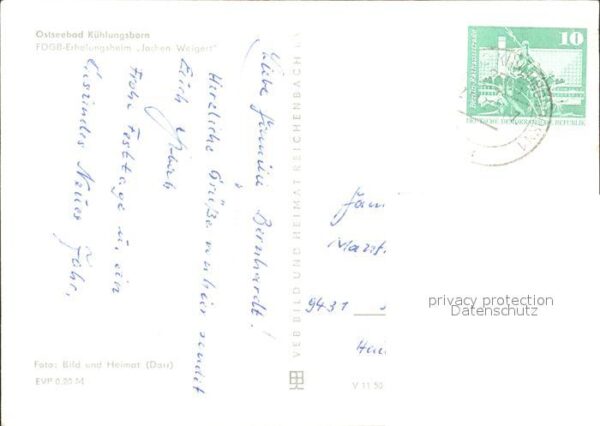 Ostseebad Kühlungsborn
FDGB-Erholungsheim „Jochen Weigert"
Liebe Familie Bernhardt!
Herzliche Grüße von hier sendet
Euch
Frohe Festtage u. ein
Gesundes Neues Jahr,
Foto: Bild und Heimat (Darr)
EVP 0,20 M
VEB BILD UND HEIMAT REICHENBACH
V 11 50
10
DEUTSCHE DEMOKRATISCHE REPUBLIK
Fam
9431
Hau
privacy protection
Datenschutz